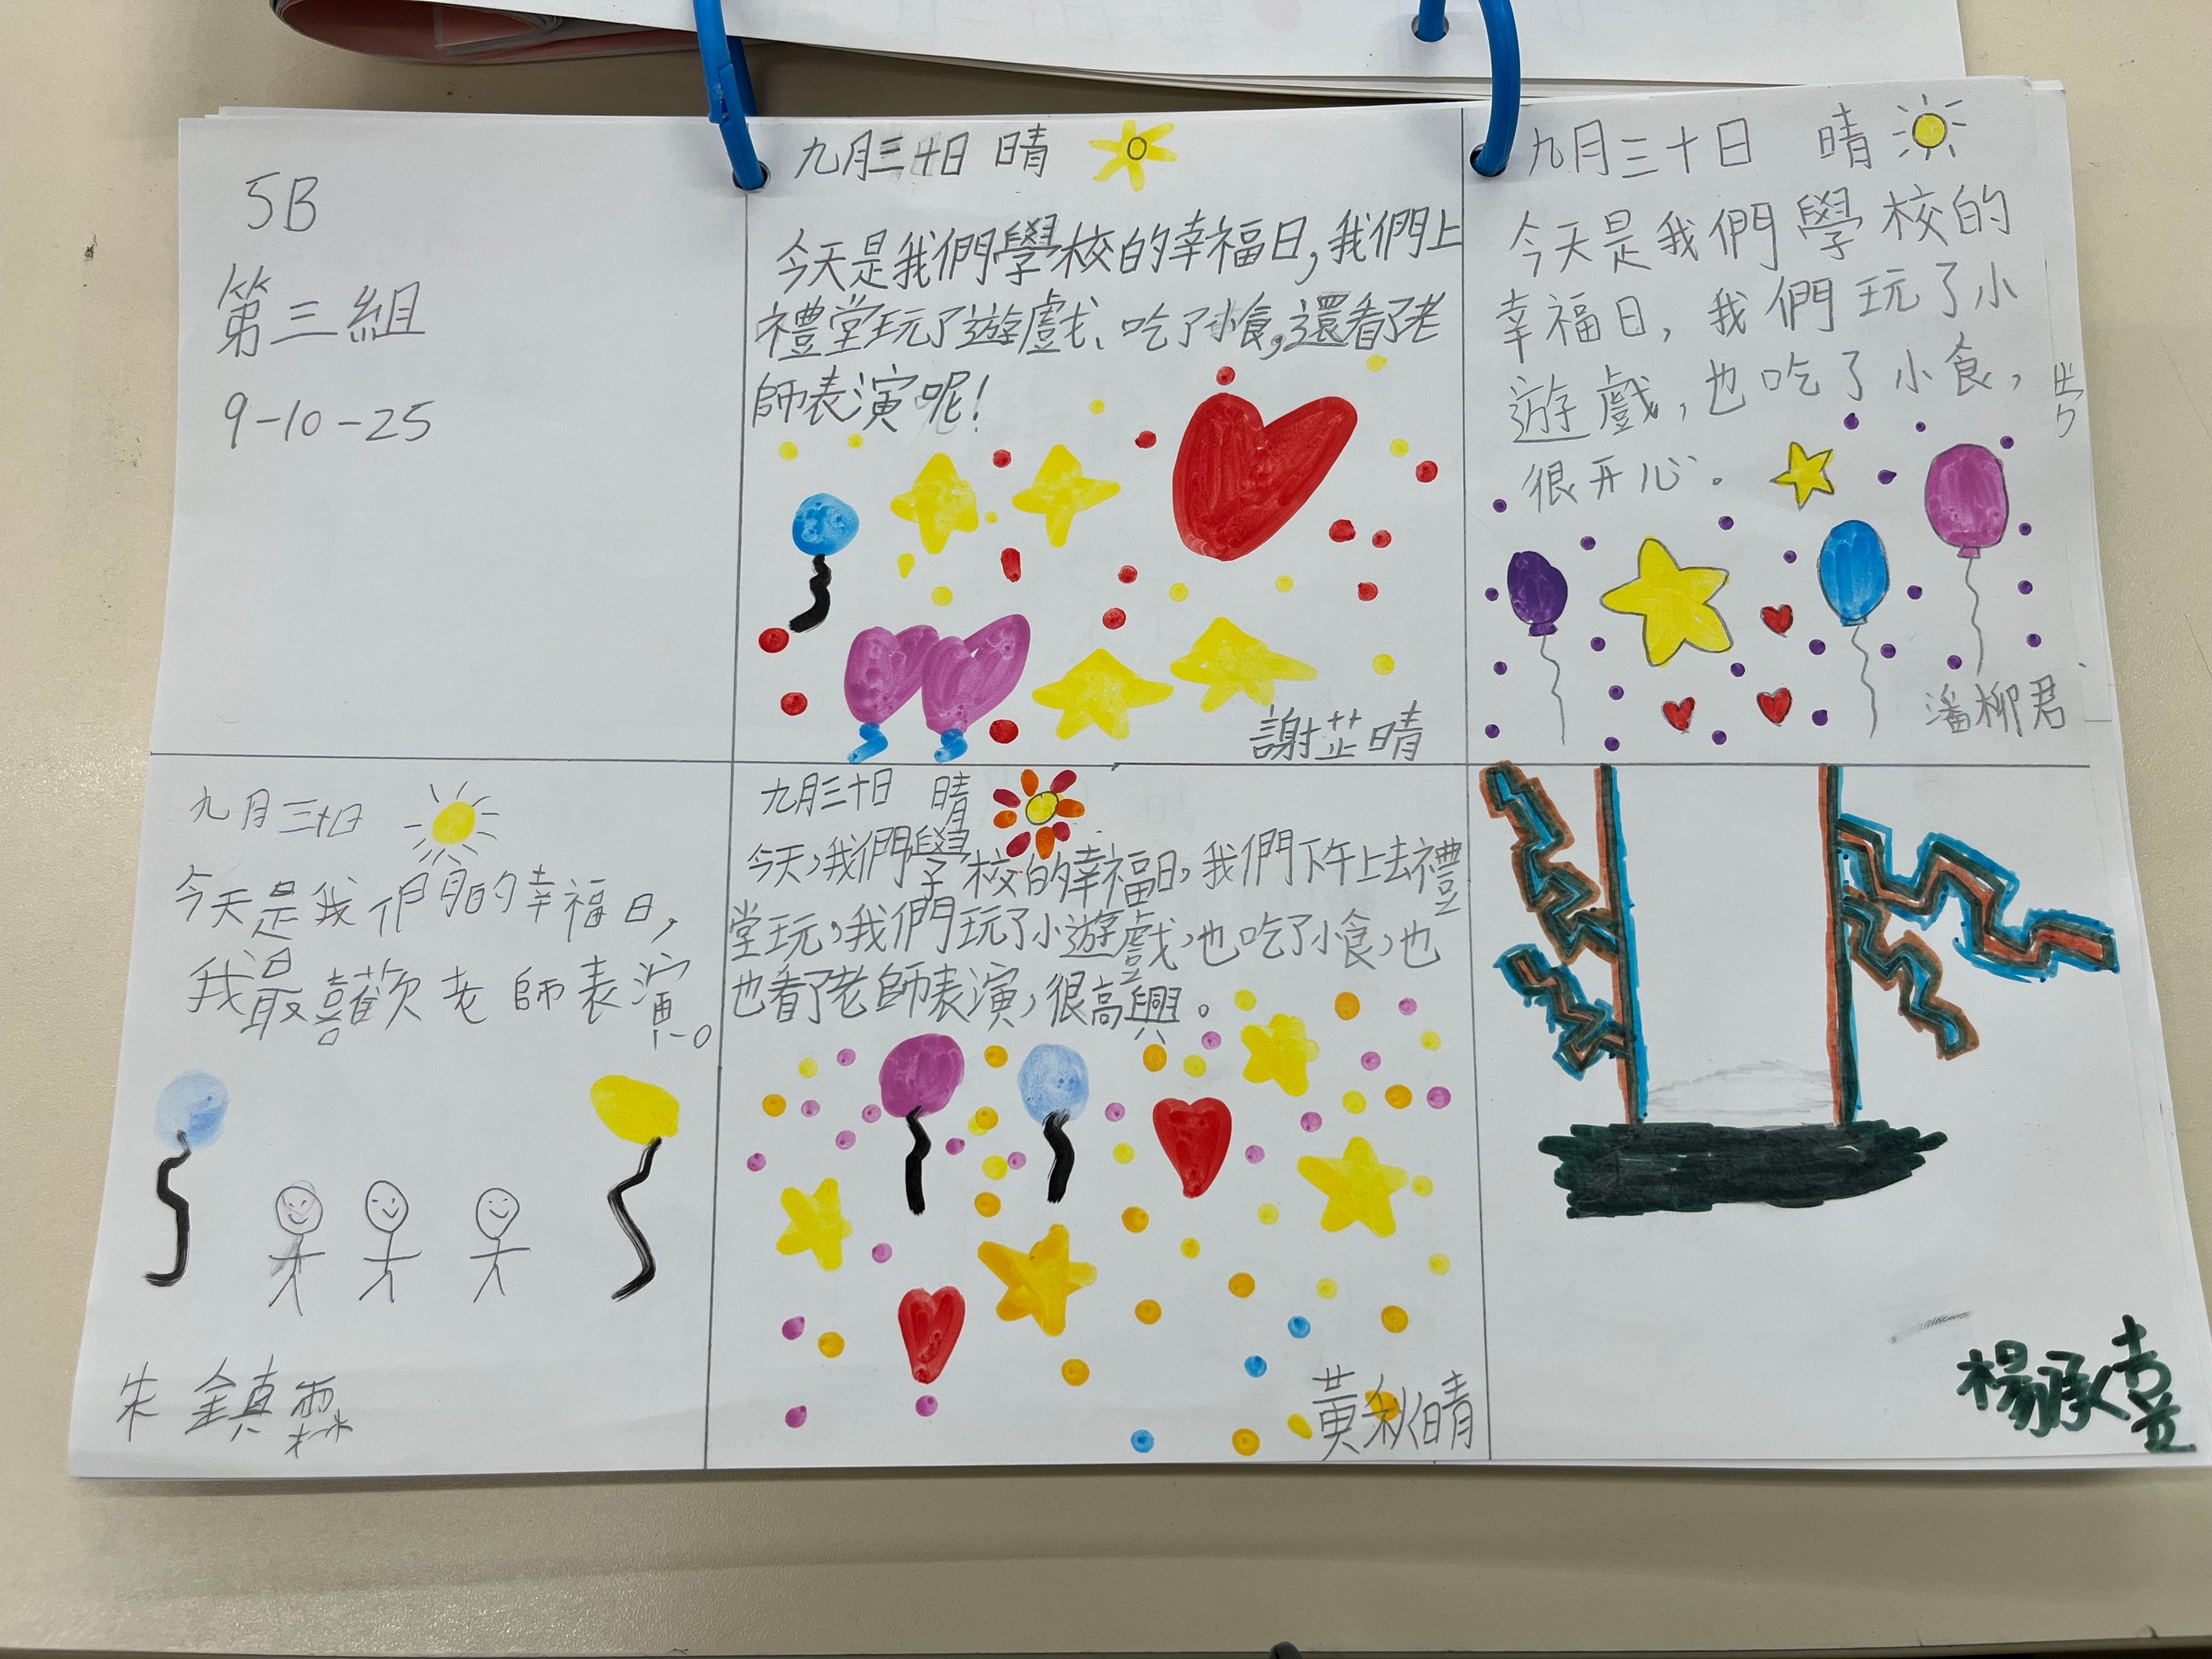 5B
第三組
9-10-25
九月三十日 晴
今天是我們學校的幸福日，我們上
禮堂玩了遊戲、吃了小食，還看了老
師表演呢！
謝芷晴
九月三十日 晴
今天是我們學校的
幸福日，我們玩了小
遊戲，也吃了小食，
很开心。
潘柳君
九月三十日
今天是我們的幸福日，
我最喜歡老師表演。
朱鎮霖
九月三十日 晴
今天，我們學校的幸福日，我們下午上去禮
堂玩，我們玩了小遊戲，也吃了小食，也
也看了老師表演，很高興。
黃秋晴
楊承壹